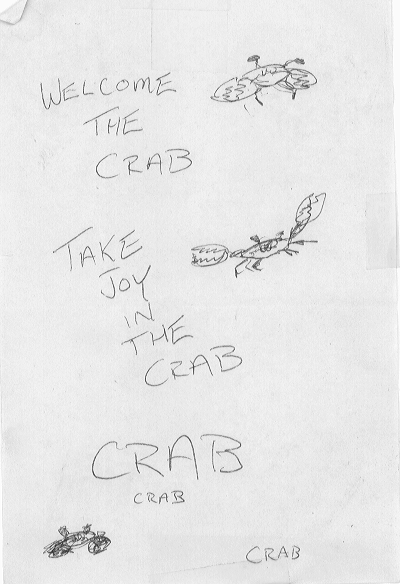 WELCOME
THE
CRAB
TAKE
JOY
IN
THE
CRAB
CRAB
CRAB
CRAB